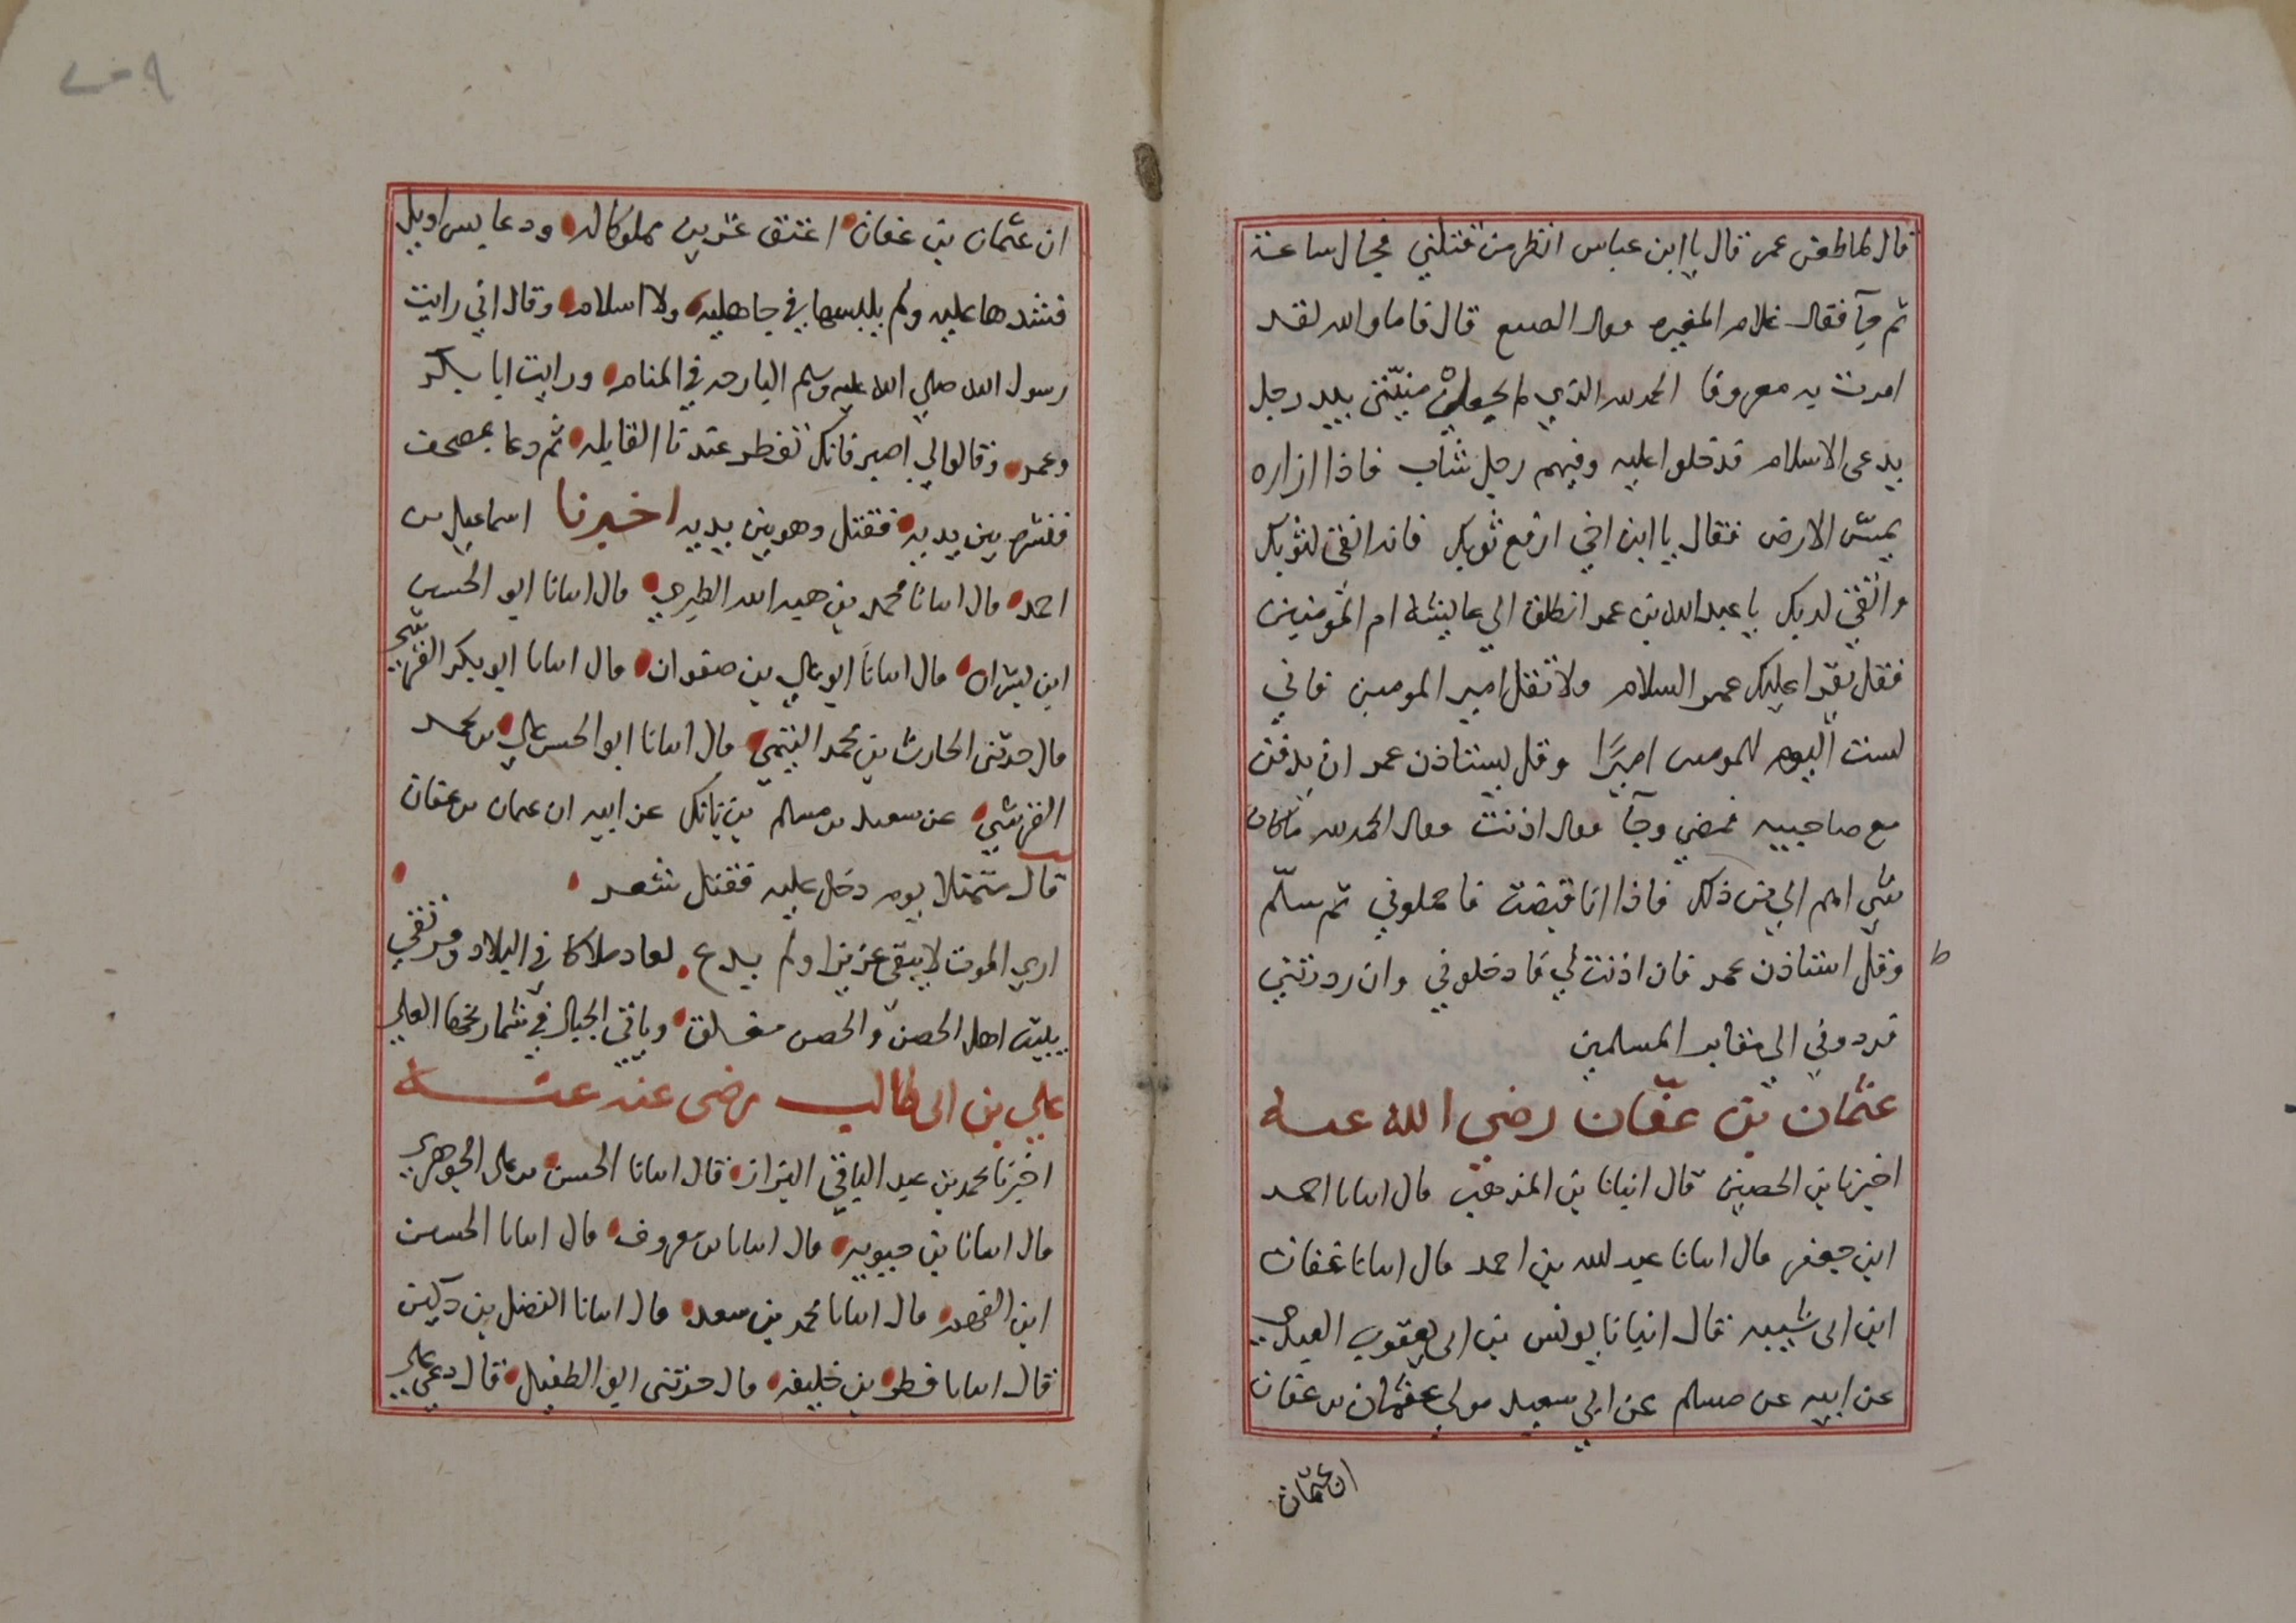 قال لما طعن عمر قال يا ابن عباس انظر من قتلني فجال ساعة
ثم جآ فقال غلام المغيره فقال الصنع قال قاما والله لقد
امرت به معروفا الحمد لله الذي لم يجعل منيّتي بيد رجل
يدعى الاسلام فدخلوا عليه وفيهم رجل شاب فاذا ازاره
يمسّ الارض فقال يا ابن اخي ارفع ثوبك فانه انقى لثوبك
واتقى لربك يا عبد الله بن عمر انطلق الي عايشه ام المؤمنين
فقل يقرا عليك عمر السلام ولا تقل امير المومنين فاني
لست اليوم للمومنين اميرًا وقل يستاذن عمر ان يدفن
مع صاحبيه فمضي وجآ فقال اذنت فقال الحمد لله ما كان
شي اهم الي من ذلك فاذا انا قبضت فاحملوني ثم سلّم
وقل استاذن عمر فان اذنت لي فادخلوني وان ردتني
فردوني الي مقابر المسلمين
عثمان بن عفّان رضي الله عنه
اخبرنا بن الحصين قال انبانا بن المذهب قال انبانا احمد
ابن جعفر قال انبانا عبد الله بن احمد قال انبانا عفان
ابن ابى شيبه قال انبانا يونس بن ابى يعقوب العبدي
عن ابيه عن مسلم عن ابي سعيد مولي عثمان بن عفان
ان عثمان
ان عثمان بن عفان اعتق عشرين مملوكا له ودعا بسراويل
فشدها عليه ولم يلبسها في جاهليه ولا اسلام وقال اني رايت
رسول الله صلي الله عليه وسلم البارحه في المنام ورايت ابا بكر
وعمر وقالوا لي اصبر فانك تفطر عندنا القابله ثم دعا بمصحف
فنشره بين يديه فقتل وهو بين يديه اخبرنا اسماعيل بن
احمد قال انبانا محمد بن هبه الله الطبري قال انبانا ابو الحسين
ابن بشران قال انبانا ابو علي بن صفوان قال انبانا ابو بكر القرشي
قال حدثنى الحارث بن محمد التيمي قال انبانا ابو الحسن علي بن محمد
القرشي عن سعيد بن مسلم بن بانك عن ابيه ان عثمان بن عفان
قال متمثلا يوم دخل عليه فقتل شعر
اري الموت لا يبقى عزيزا ولم يدع لعاد ملاكا في البلاد ومرتقى
يبيت اهل الحصن والحصن مغلق وياتى الجبال في شماريخها العلي
علي بن ابى طالب رضى عنه عنه
اخبرنا محمد بن عبد الباقي البزاز قال انبانا الحسن بن علي الجوهري
قال انبانا بن حيويه قال انبانا بن معروف قال انبانا الحسين
ابن الفهم قال انبانا محمد بن سعد قال انبانا الفضل بن دكين
قال انبانا فطر بن خليفه قال حدثنى ابو الطفيل قال دعي علي